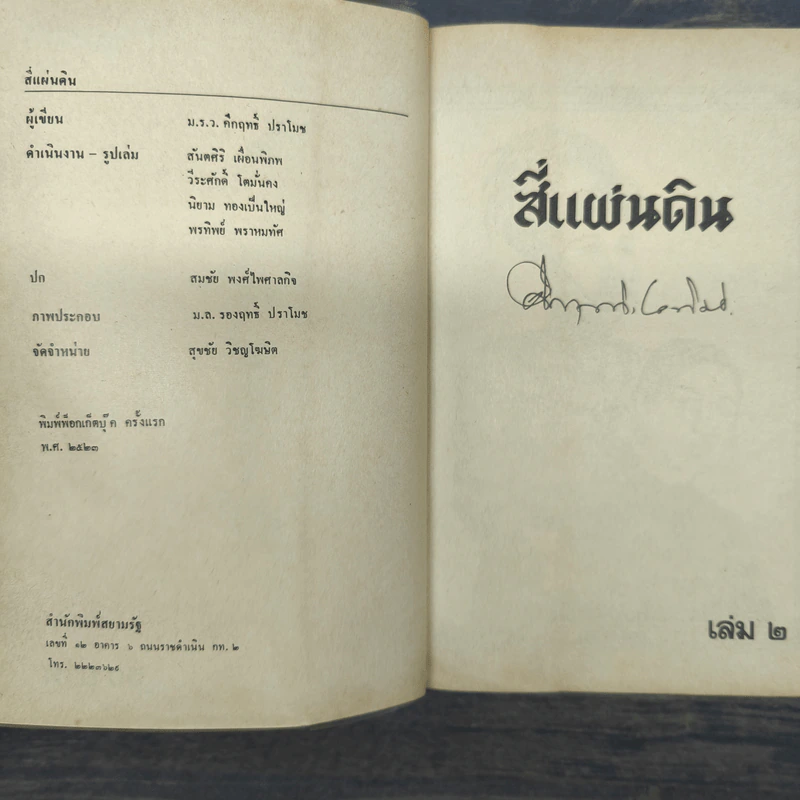 สี่แผ่นดิน
ผู้เขียน ม.ร.ว. คึกฤทธิ์ ปราโมช
ดำเนินงาน – รูปเล่ม สันตศิริ เผื่อนพิภพ
วีระศักดิ์ โตมั่นคง
นิยาม ทองเป็นใหญ่
พรทิพย์ พราหมทัศ
ปก สมชัย พงศ์ไพศาลกิจ
ภาพประกอบ ม.ล. รองฤทธิ์ ปราโมช
จัดจำหน่าย สุขชัย วิชญโฆษิต
พิมพ์พ็อกเก็ตบุ๊ค ครั้งแรก
พ.ศ. ๒๕๒๓
สำนักพิมพ์สยามรัฐ
เลขที่ ๑๒ อาคาร ๖ ถนนราชดำเนิน กท. ๒
โทร. ๒๒๒๓๖๒๙
สี่แผ่นดิน
เล่ม ๒